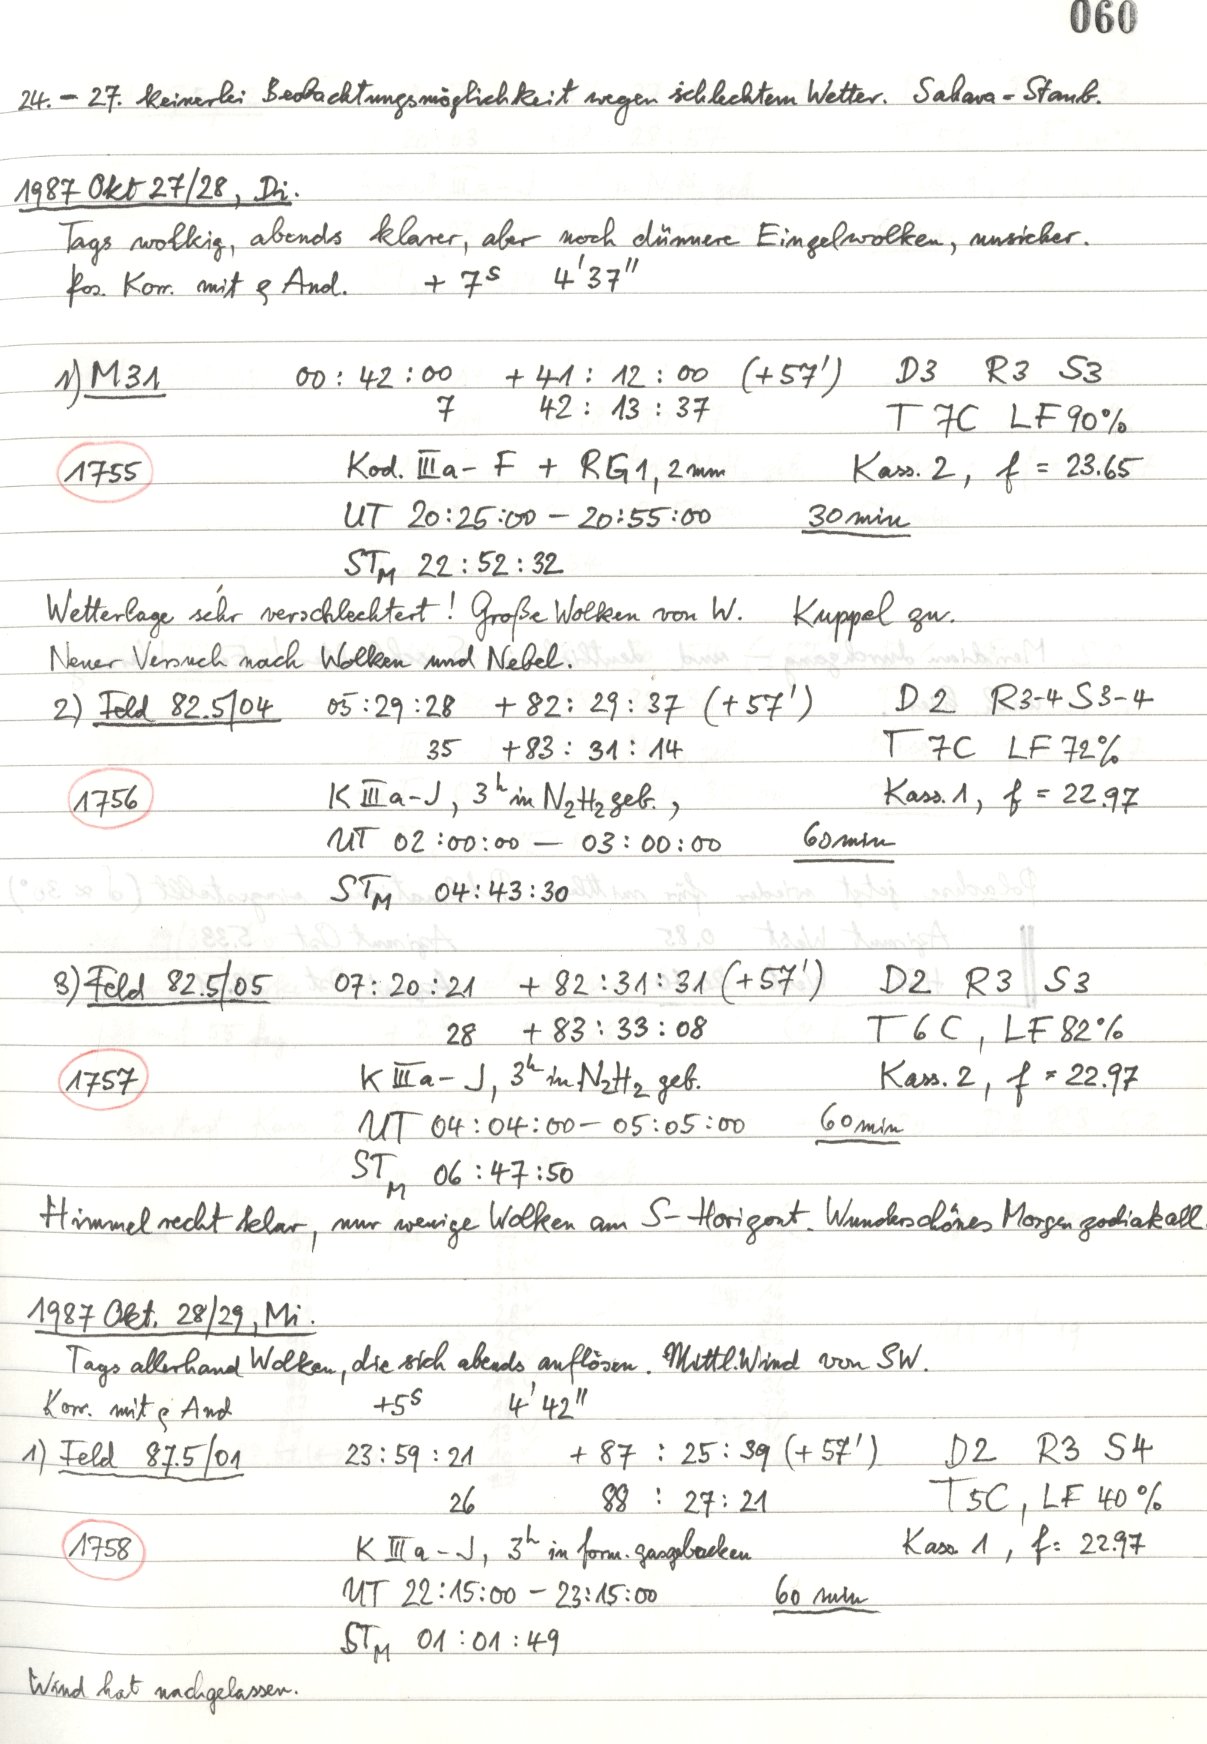 060
24. – 27. keinerlei Beobachtungsmöglichkeit wegen schlechtem Wetter. Sahara-Staub.
1987 Okt 27/28, Di.
Tags wolkig, abends klarer, aber noch dünnere Einzelwolken, unsicher.
Pos. Korr. mit ρ And. + 7ˢ 4'37"
1) M31 00 : 42 : 00 + 41 : 12 : 00 (+57') D3 R3 S3
7 42 : 13 : 37 T 7C LF 90%
1755 Kod. IIIa-F + RG1, 2mm Kass. 2, f = 23.65
UT 20:25:00 – 20:55:00 30 min
STM 22 : 52 : 32
Wetterlage sehr verschlechtert! Große Wolken von W. Kuppel zu.
Neuer Versuch nach Wolken und Nebel.
2) Feld 82.5/04 05:29:28 + 82 : 29 : 37 (+57') D 2 R3-4 S3-4
35 +83 : 31 : 14 T 7C LF 72%
1756 K IIIa-J, 3ʰ in N2H2 geb., Kass. 1, f = 22.97
UT 02 :00:00 — 03 : 00:00 60 min
STM 04:43:30
3) Feld 82.5/05 07 : 20 : 21 + 82 : 31 : 31 (+57') D2 R3 S3
28 + 83 : 33 : 08 T 6 C, LF 82%
1757 K IIIa-J, 3ʰ in N2H2 geb. Kass. 2, f = 22.97
UT 04:04:00 – 05:05:00 60 min
STM 06 :47:50
Himmel recht klar, nur wenige Wolken am S-Horizont. Wunderschönes Morgenzodiakall
1987 Okt. 28/29, Mi.
Tags allerhand Wolken, die sich abends auflösen. Mittl. Wind von SW.
Korr. mit ρ And +5ˢ 4'42"
1) Feld 87.5/01 23:59:21 + 87 : 25:39 (+57') D2 R3 S4
26 88 : 27:21 T5C, LF 40%
1758 K IIIa-J, 3ʰ in form. gasgebacken Kass 1, f= 22.97
UT 22:15:00 – 23:15:00 60 min
STM 01:01:49
Wind hat nachgelassen.